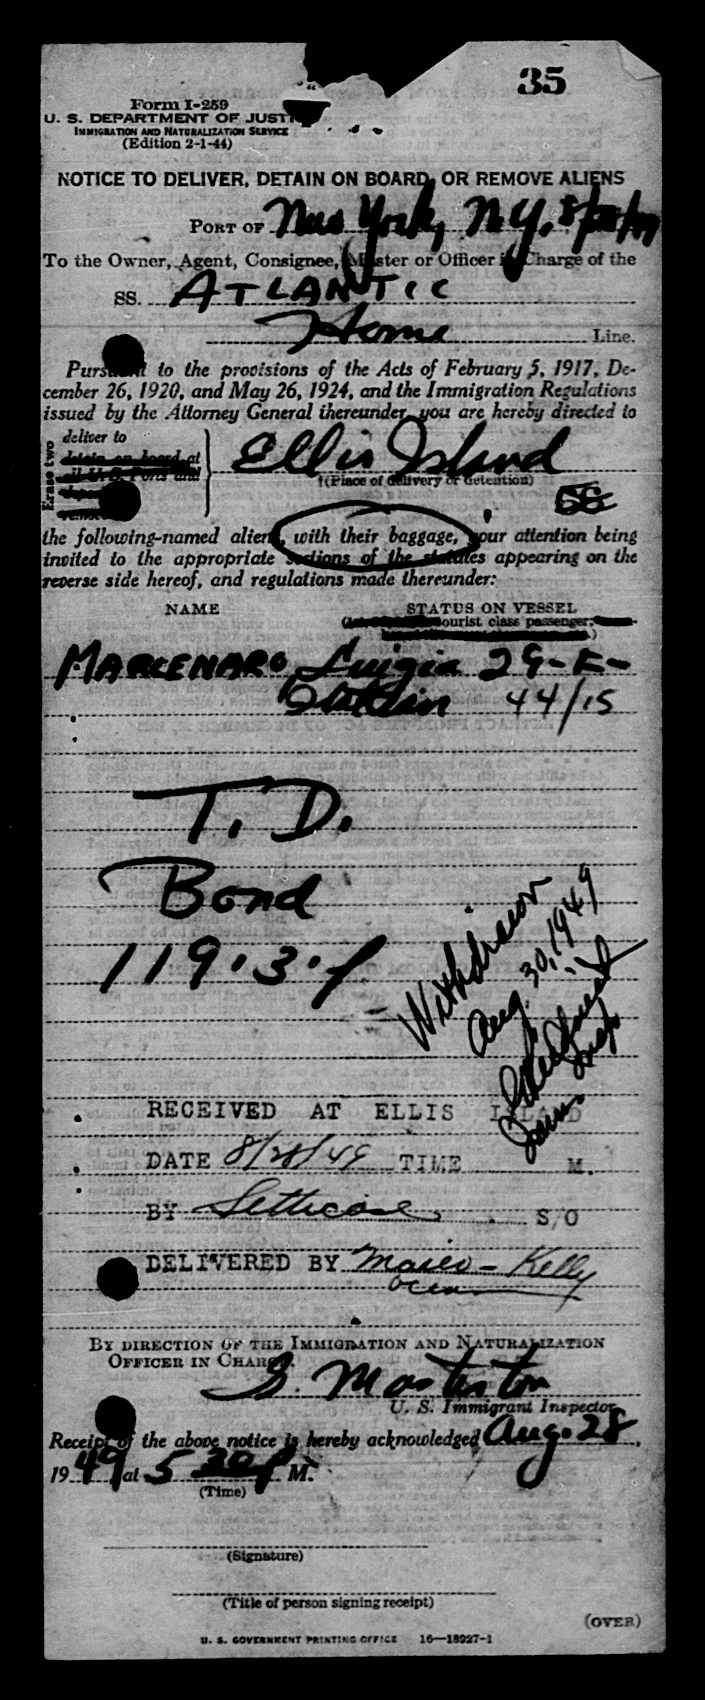 35
Form I-259
U. S. DEPARTMENT OF JUSTI
IMMIGRATION AND NATURALIZATION SERVICE
(Edition 2-1-44)
NOTICE TO DELIVER, DETAIN ON BOARD, OR REMOVE ALIENS
PORT OF New York, N.Y.
To the Owner, Agent, Consignee, Master or Officer in Charge of the
SS. ATLANTIC
Home Line.
Pursuant to the provisions of the Acts of February 5, 1917, De-
cember 26, 1920, and May 26, 1924, and the Immigration Regulations
issued by the Attorney General thereunder, you are hereby directed to
Erase two
deliver to
detain on board at
all U.S. Ports and
Ellis Island
†(Place of delivery or detention)
the following-named alien, with their baggage, your attention being
invited to the appropriate sections of the statutes appearing on the
reverse side hereof, and regulations made thereunder:
NAME STATUS ON VESSEL
tourist class passenger,
MARCENARO, Luigia 29-F-
44/15
T. D.
Bond
119.3.f
Withdrawn
Aug. 30, 1949
RECEIVED AT ELLIS ISLAND
DATE 8/28/49 TIME M.
BY S/O
DELIVERED BY - Kelly
BY DIRECTION OF THE IMMIGRATION AND NATURALIZATION
OFFICER IN CHARGE.
U. S. Immigrant Inspector.
Receipt of the above notice is hereby acknowledged Aug. 28,
1949 at 5 30 P M.
(Time)
(Signature)
(Title of person signing receipt)
(OVER)
U. S. GOVERNMENT PRINTING OFFICE 16—18927-1